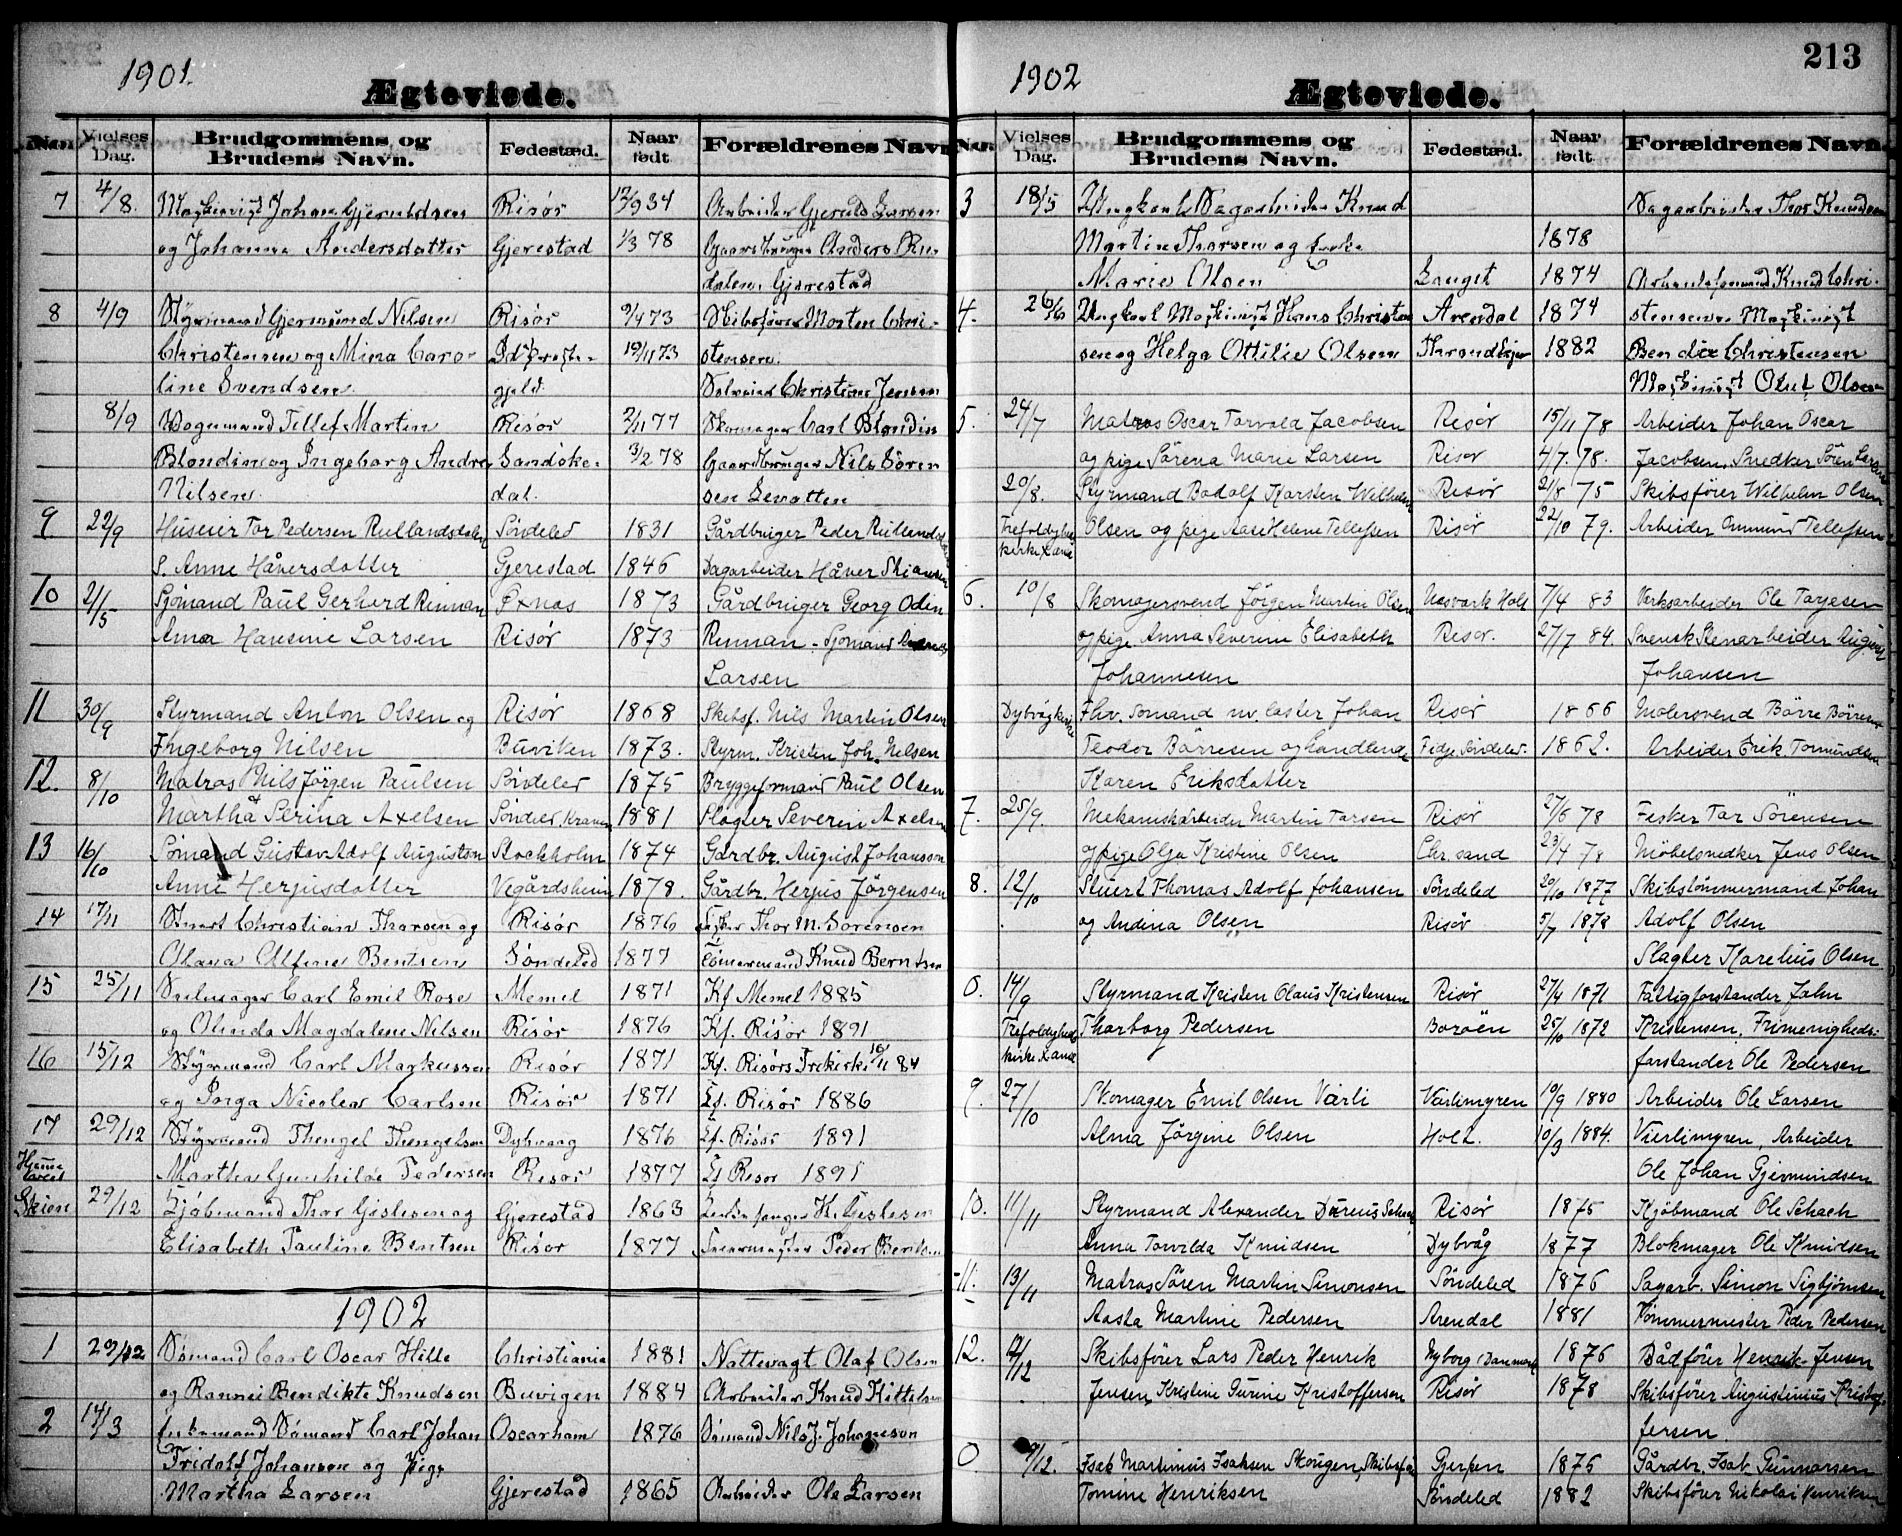 1901.
Ægteviede.
No. Vielses Dag. Brudgommens og Brudens Navn. Fødested. Naar født Forældrenes Navn
7 4/8. Johan Gjermundsen Risør 12/9 34 Arbeider Gjerulf Larsen
og Johanne Andersdatter Gjerestad 1/3 78 Gaardbruger Anders
dalen, Gjerestad
8 4/9 Styrmand Gjermund Nilsen Risør 9/4 73 Skibsfører Morten Chri-
Christensen og Mina Caro- 19/11 73 stensen.
line Svendsen. gjeld. Christian Jensen
8/9 Vognmand Tellef Martin Risør 2/11 77 Skomager Carl Blondin
Blondin og Ingeborg Andrea Sandøke- 3/2 78 Gaardbruger Nils Sören
Nilsen. dal. sen Levatten
9 22/9 Huseier Tor Pedersen Rullandsdalen Söndeled 1831 Gårdbruger Peder Rullandsdalen
S. Anne Håversdatter Gjerestad 1846 Dagarbeider Håver
10 2/5 Sjömand Paul Gerherd Rinnan 1873 Gårdbruger Georg Odin
Anna Hansine Larsen Risör 1873 Rinnan - Sjömand
Larsen
11 30/9 Styrmand Anton Olsen og Risör 1868 Skibsf. Nils Martin Olsen
Ingeborg Nilsen Buviken 1873. Styrm. Kristen Joh. Nilsen
12. 8/10 Matros Nils Jörgen Paulsen Söndeled 1875 Bryggeformand Paul Olsen
Martha Serina Axelsen Sönder, Kranen 1881 Slagter Severin Axelsen
13 16/10 Sömand Gustav Adolf Auguston Stockholm 1874 Gårdbr. August Johansson
Anne Herjusdatter Vegårdsheien 1878. Gårdbr. Herjus Jörgensen
14 17/11 Stuert Christian Thorsen og Risør 1876 Fisker Thor M. Sorensen
Olava Alfine Bentsen Söndeled 1877 Tömermand Knud Berntsen
15 25/11 Seilmager Carl Emil Rose Memel 1871 Kf Memel 1885
og Olinda Magdalene Nilsen Risör 1876 Kf. Risör 1891
16 15/12 Styrmand Carl Markussen Risör 1871 Kf. Risörs Frikirke 16/11 84
og Borga Nicolea Carlsen Risör 1871 Kf. Risör 1886
17 29/12 Styrmand Thengel Thengelsen Dybvaag 1876 Kf. Risör 1891
Hjemme Martha Gunhilde Pedersen Risör 1877 Kf Risor 1891
Skien 29/12 Kjöbmand Thor Gislesen og Gjerestad 1863 K. Gislesen
Elisabeth Pauline Bentsen Risör 1877 Peder Bentsen
1902
1 29/12 Sömand Carl Oscar Hille Christiania 1881 Nattevagt Olaf Olsen
og Rannei Bendikte Knudsen Buvigen 1884 Arbeider Knud Kittelsen
2 14/3 Enkemand Sömand Carl Johan Oscarham 1876 Sömand Nils J. Johanson
Fridolf Johanson og Pige
Martha Larsen Gjerestad 1865 Arbeider Ole Larsen
1902
213
Ægteviede.
No. Vielses Dag. Brudgommens og Brudens Navn. Fødested. Naar født Forældrenes Navn.
3 18/5 Ungkarl Sagarbeider Knud Sagarbeider Thor Knudsen
Martin Thorsen og Enke 1878
Marie Olsen Lauget 1874 Arbeidsformand Knud Chri-
4. 26/6 Ungkarl Maskinist Hans Christen Arendal 1874 stensen. Maskinist
sen og Helga Ottilie Olsen Throndhjem 1882 Bendix Christensen
Maskinist Olaf Olsen
5. 24/7 Matros Oscar Torvald Jacobsen Risör 15/11 78 Arbeider Johan Oscar
og pige Sörena Marie Larsen Risör 4/7. 78. Jacobsen. Snedker Sören Larsen
20/8. Styrmand Bodolf Karsten Wilhelm Risör 21/8 75 Skibsförer Wilhelm Olsen
Trefoldighedskirke Xania Olsen og pige Aase Helene Tellefsen Risör 22/10 79. Arbeider Ommund Tellefsen
6. 10/8 Skomagersvend Jörgen Martin Olsen Nesverk Holt 7/4 83 Verksarbeider Ole Tarjesen
og pige. Anna Severine Elisabeth Risör. 27/7 84. Svensk Stenarbeider August
Johannesen Johansen
Dybvåg kirke Fhv. Sömand nv. laster Johan Risör 1866 Malersvend Börre Börresen
Teodor Börresen og handlende Fidje Söndeled. 1862. Arbeider Erik Tormundsen
Karen Eriksdatter
7. 25/9. Mekaniskarbeider Martin Torsen Risör 27/6 78 Fisker Tor Sörensen
og pige Olga Kristine Olsen Chr. sand 23/4 78 Möbelsnedker Jens Olsen
8. 12/10 Stuert Thomas Adolf Johansen Söndeled 20/10 1877 Skibstömmermand Johan
og Andina Olsen Risör 5/7 1878 Adolf Olsen
Slagter Karelius Olsen
0. 14/9 Styrmand Kristen Olaus Kristensen Risör 27/4 1871 Fattigforstander John
Trefoldighedkirke Xania Thorborg Pedersen Borøen 25/10 1872 Kristensen, Frimenigheds-
forstander Ole Pedersen
9. 27/10 Skomager Emil Olsen Værli Værlimyren 19/9 1880 Arbeider Ole Larsen
Alma Jörgine Olsen Holt. 10/3 1884. Vierlimyren, Arbeider
Ole Johan Gjermundsen
10. 11/11 Styrmand Alexander Schach Risör 1875 Kjöbmand Ole Schach
Anna Torvilda Knudsen Dybvåg 1877 Blokmager Ole Knudsen
11. 13/11 Matros Sören Martin Simonsen Söndeled 1876 Sagarb. Simon Sigbjörnsen
Aasta Martine Pedersen Arendal 1881 Tömmermester Peder Pedersen
12. 12/12 Skibsförer Lars Peder Henrik Nyborg (Danmark 1876 Bådförer Henrik Jensen
Jensen, Kristine Gurine Kristoffersen Risör 1878 Skibsförer Augustinius Kristof-
fersen.
0. 9/12. Isak Martinius Isaksen Skougen, Skibsför Gjerpen 1875 Gårdbr. Isak Gunnarsen
Tomine Henriksen Söndeled 1882 Skibsförer Nikolai Henriksen